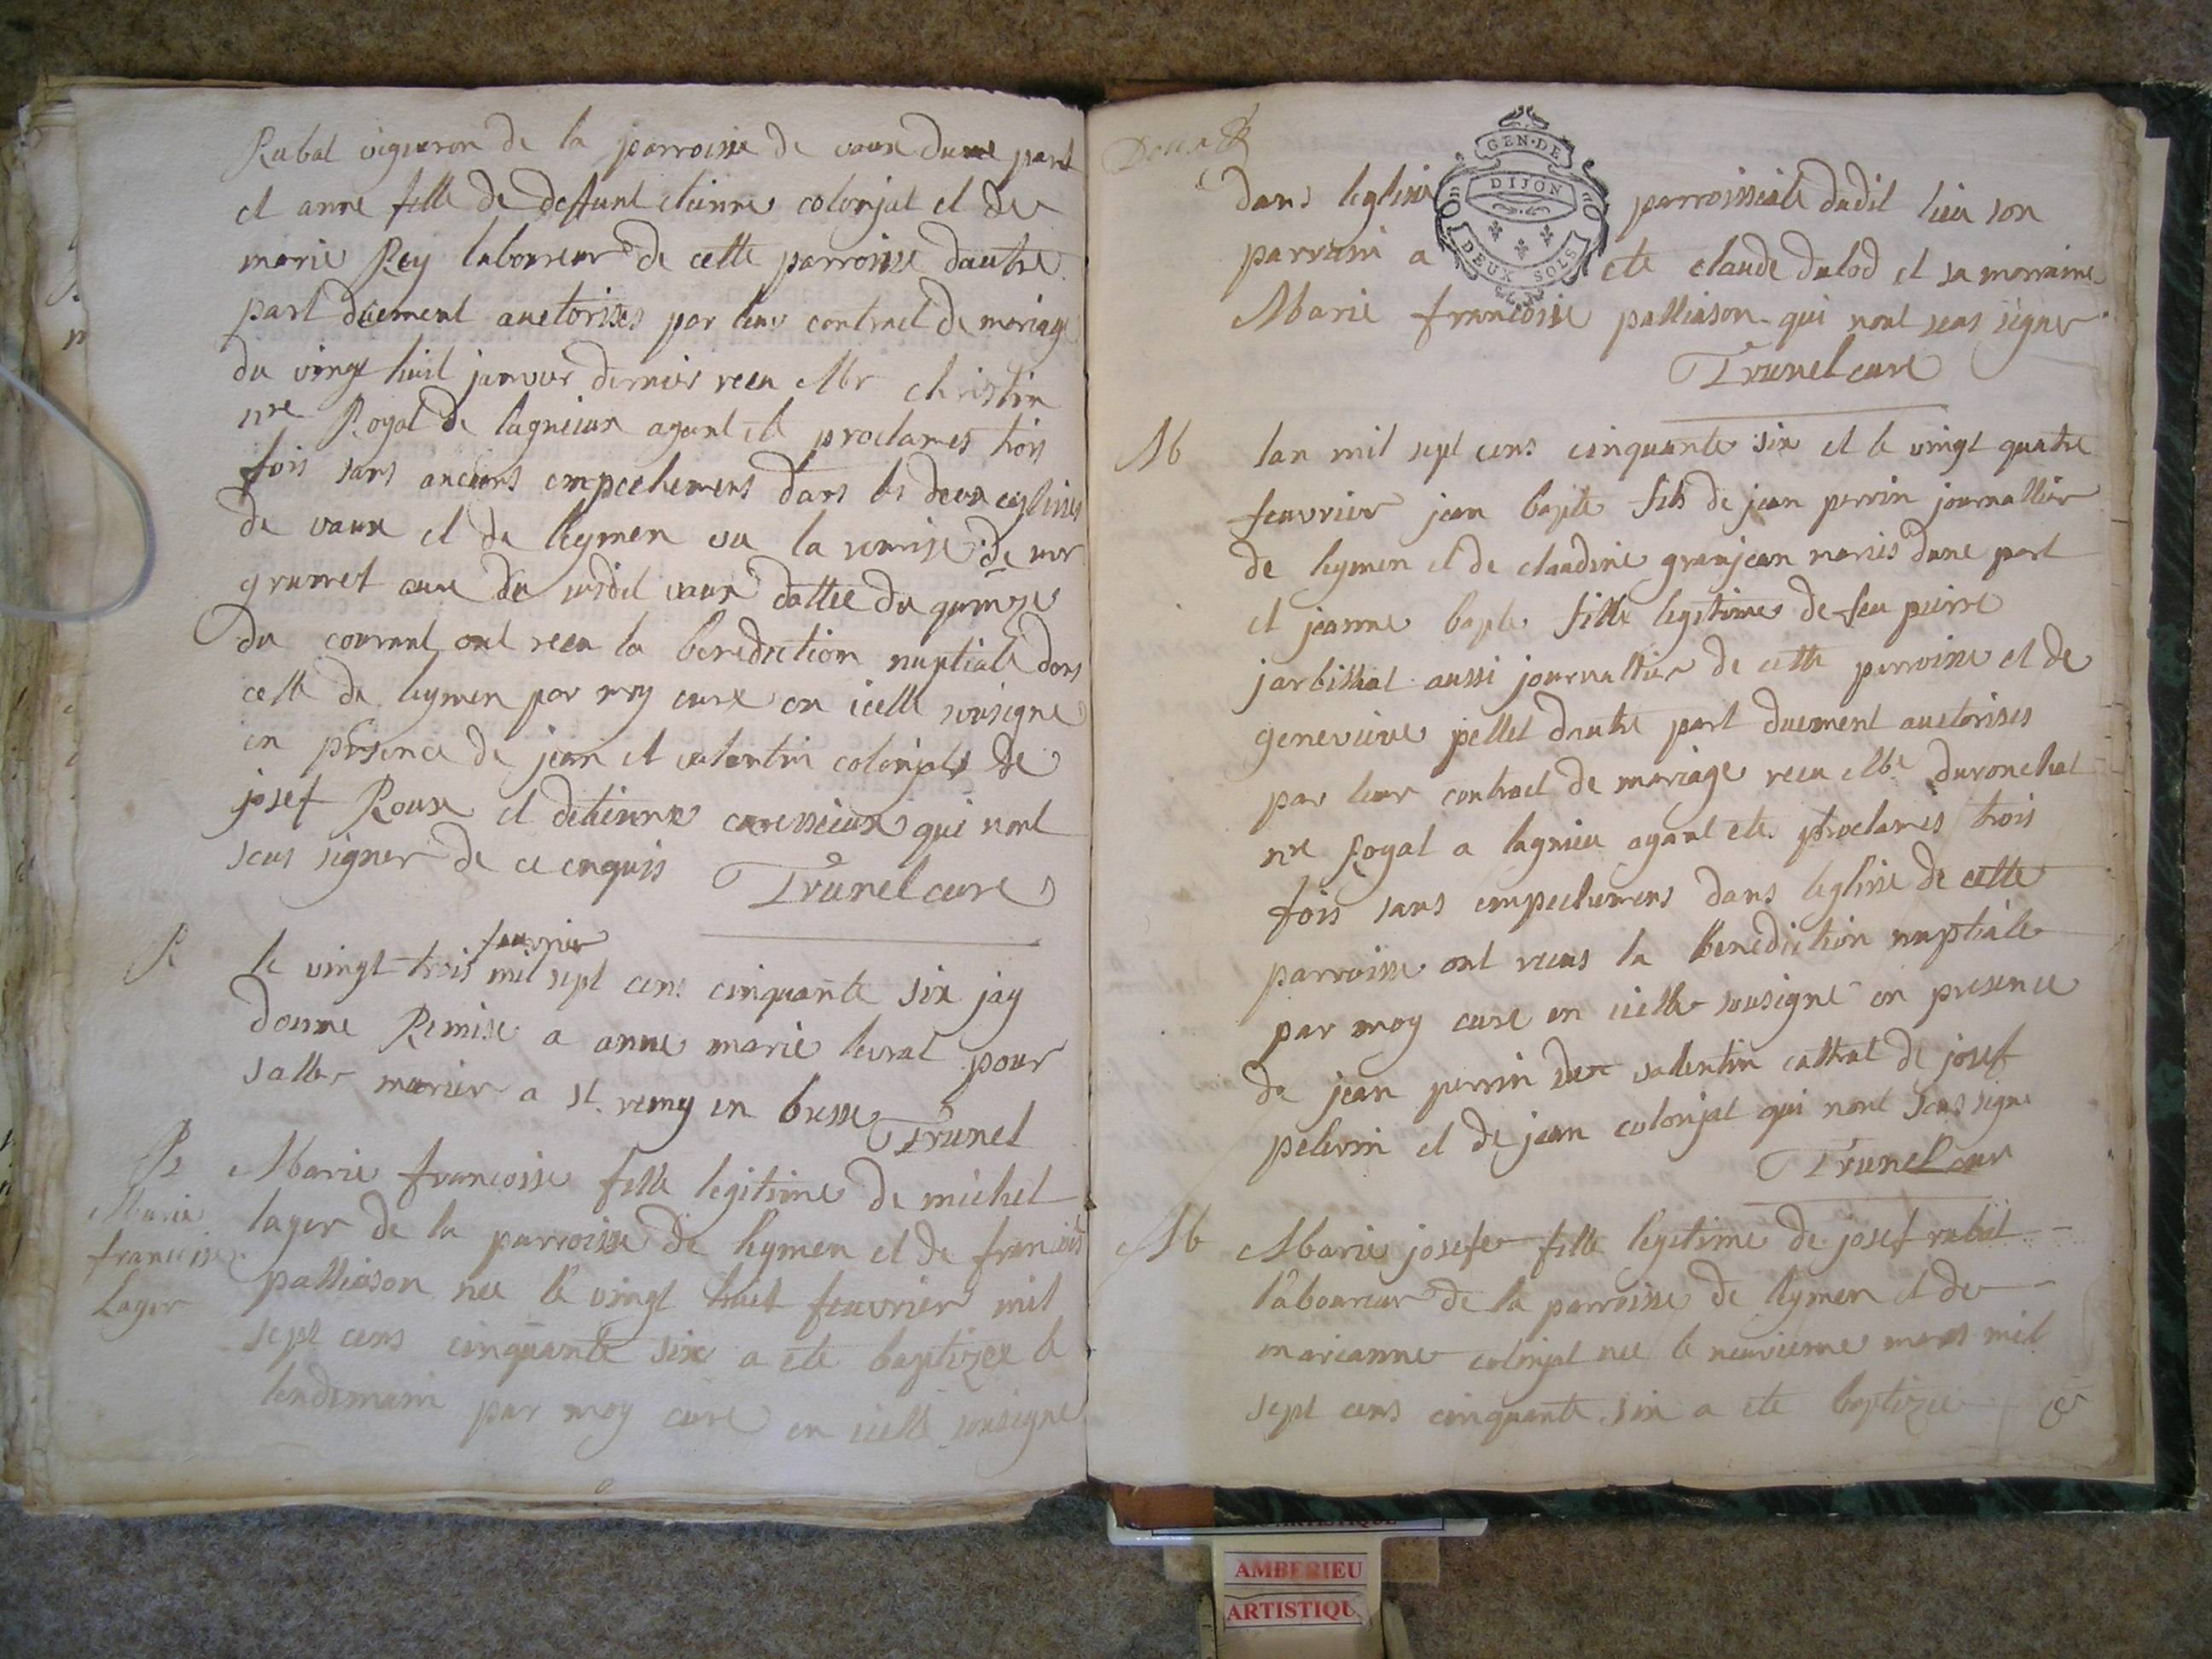 Rubat vigneron de la parroisse de vaux dune part
et anne fille de deffunt etienne colonjat et de
marie Rey laboureur de cette parroisse dautre
part duement auctorisés par leur contract de mariage
du vingt huit janvier dernier receu Mr christin
nre Royal de lagnieux ayant ete proclames trois
fois sans aucuns empechemens dans les deux eglises
de vaux et de leymen vu la remise de mr
grumet cure du susdit vaux dattée du quinze
du courant ont receu la benediction nuptiale dans
celle de leymen par moy cure en icelle sousigne
en presence de jean et valentin colonjats de
josef Roux et detienne qui nont
sceus signer de ce enquis Trunel cure
R
le vingt trois feuvrier mil sept cens cinquante six jay
donne Remise a anne marie levrat pour
saller marier a st. remy en bresse Trunel
B Marie francoise fille legitime de michel
Marie francoise Lager
lager de la parroisse de leymen et de francoise
palliason nee le vingt huit feuvrier mil
sept cens cinquante six a ete baptizee le
lendemain par moy cure en icelle sousigne
GEN·DE
DIJON
DEUX SOLS
dans leglise parroissiale dudit lieu son
parrain a ete claude dulod et sa marraine
Marie francoise palliason qui nont sceus signer
Trunel cure
M lan mil sept cens cinquante six et le vingt quatre
feuvrier jean bapte fils de jean perrin journallier
de leymen et de claudine granjean mariés dune part
et jeanne bapte fille legitime de feu pierre
jarbillat aussi journallier de cette parroisse et de
genevieve pellet dautre part duement auctorisés
par leur contract de mariage receu Me duronchat
nre Royal a lagnieu ayant ete proclamés trois
fois sans empechemens dans leglise de cette
parroisse ont receus la benediction nuptiale
par moy cure en icelle sousigne en presence
de jean perrin de valentin cattrat de josef
pelerin et de jean colonjat qui nont sceus signe
Trunel cur
M Marie josefe fille legitime de josef rubat
laboureur de la parroisse de leymen et de
marianne colonjat nee le neuvieme mars mil
sept cens cinquante six a ete baptizee
AMBERIEU
ARTISTIQU